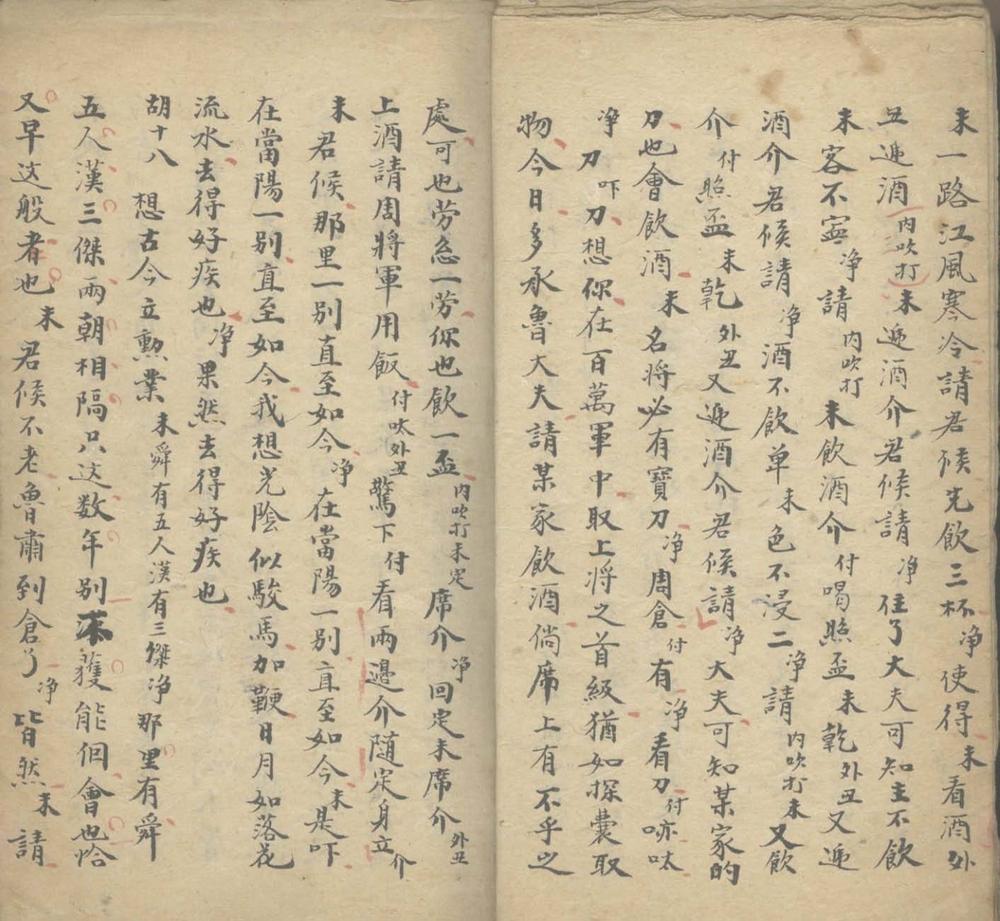 末一路江風寒冷請君候先飲三杯净使得末看酒外
丑遞酒内吹打末遞酒介君候請净住了大夫可知主不飲
末客不寧净請内吹打末飲酒介付喝照盃末乾外丑又遞
酒介君候請净酒不飲单末色不浸二净請内吹打末又飲
介付照盃末乾外丑又遞酒介君候請净大夫可知某家的
刀也會飲酒末名將必有寶刀净周倉付有净看刀付㖡呔
净刀吓刀想你在百萬軍中取上將之首級猶如探囊取
物今日多承魯大夫請某家飲酒倘席上有不乎之
處可也劳您一劳你也飲一盃内吹打末定席介净回定末席介外丑
上酒請周將軍用飯付呔外丑驚下付看兩邉介随定身立介
末君候那里一别直至如今净在當陽一别直至如今末是吓
在當陽一别直至如今我想光陰似駿馬加鞭日月如落花
流水去得好疾也净果然去得好疾也
胡十八 想古今立勲業末舜有五人漢有三傑净那里有舜
五人漢三傑兩朝相隔只这数年别不獲能個會也恰
又早这般者也末君候不老魯肅到倉了净皆然末請